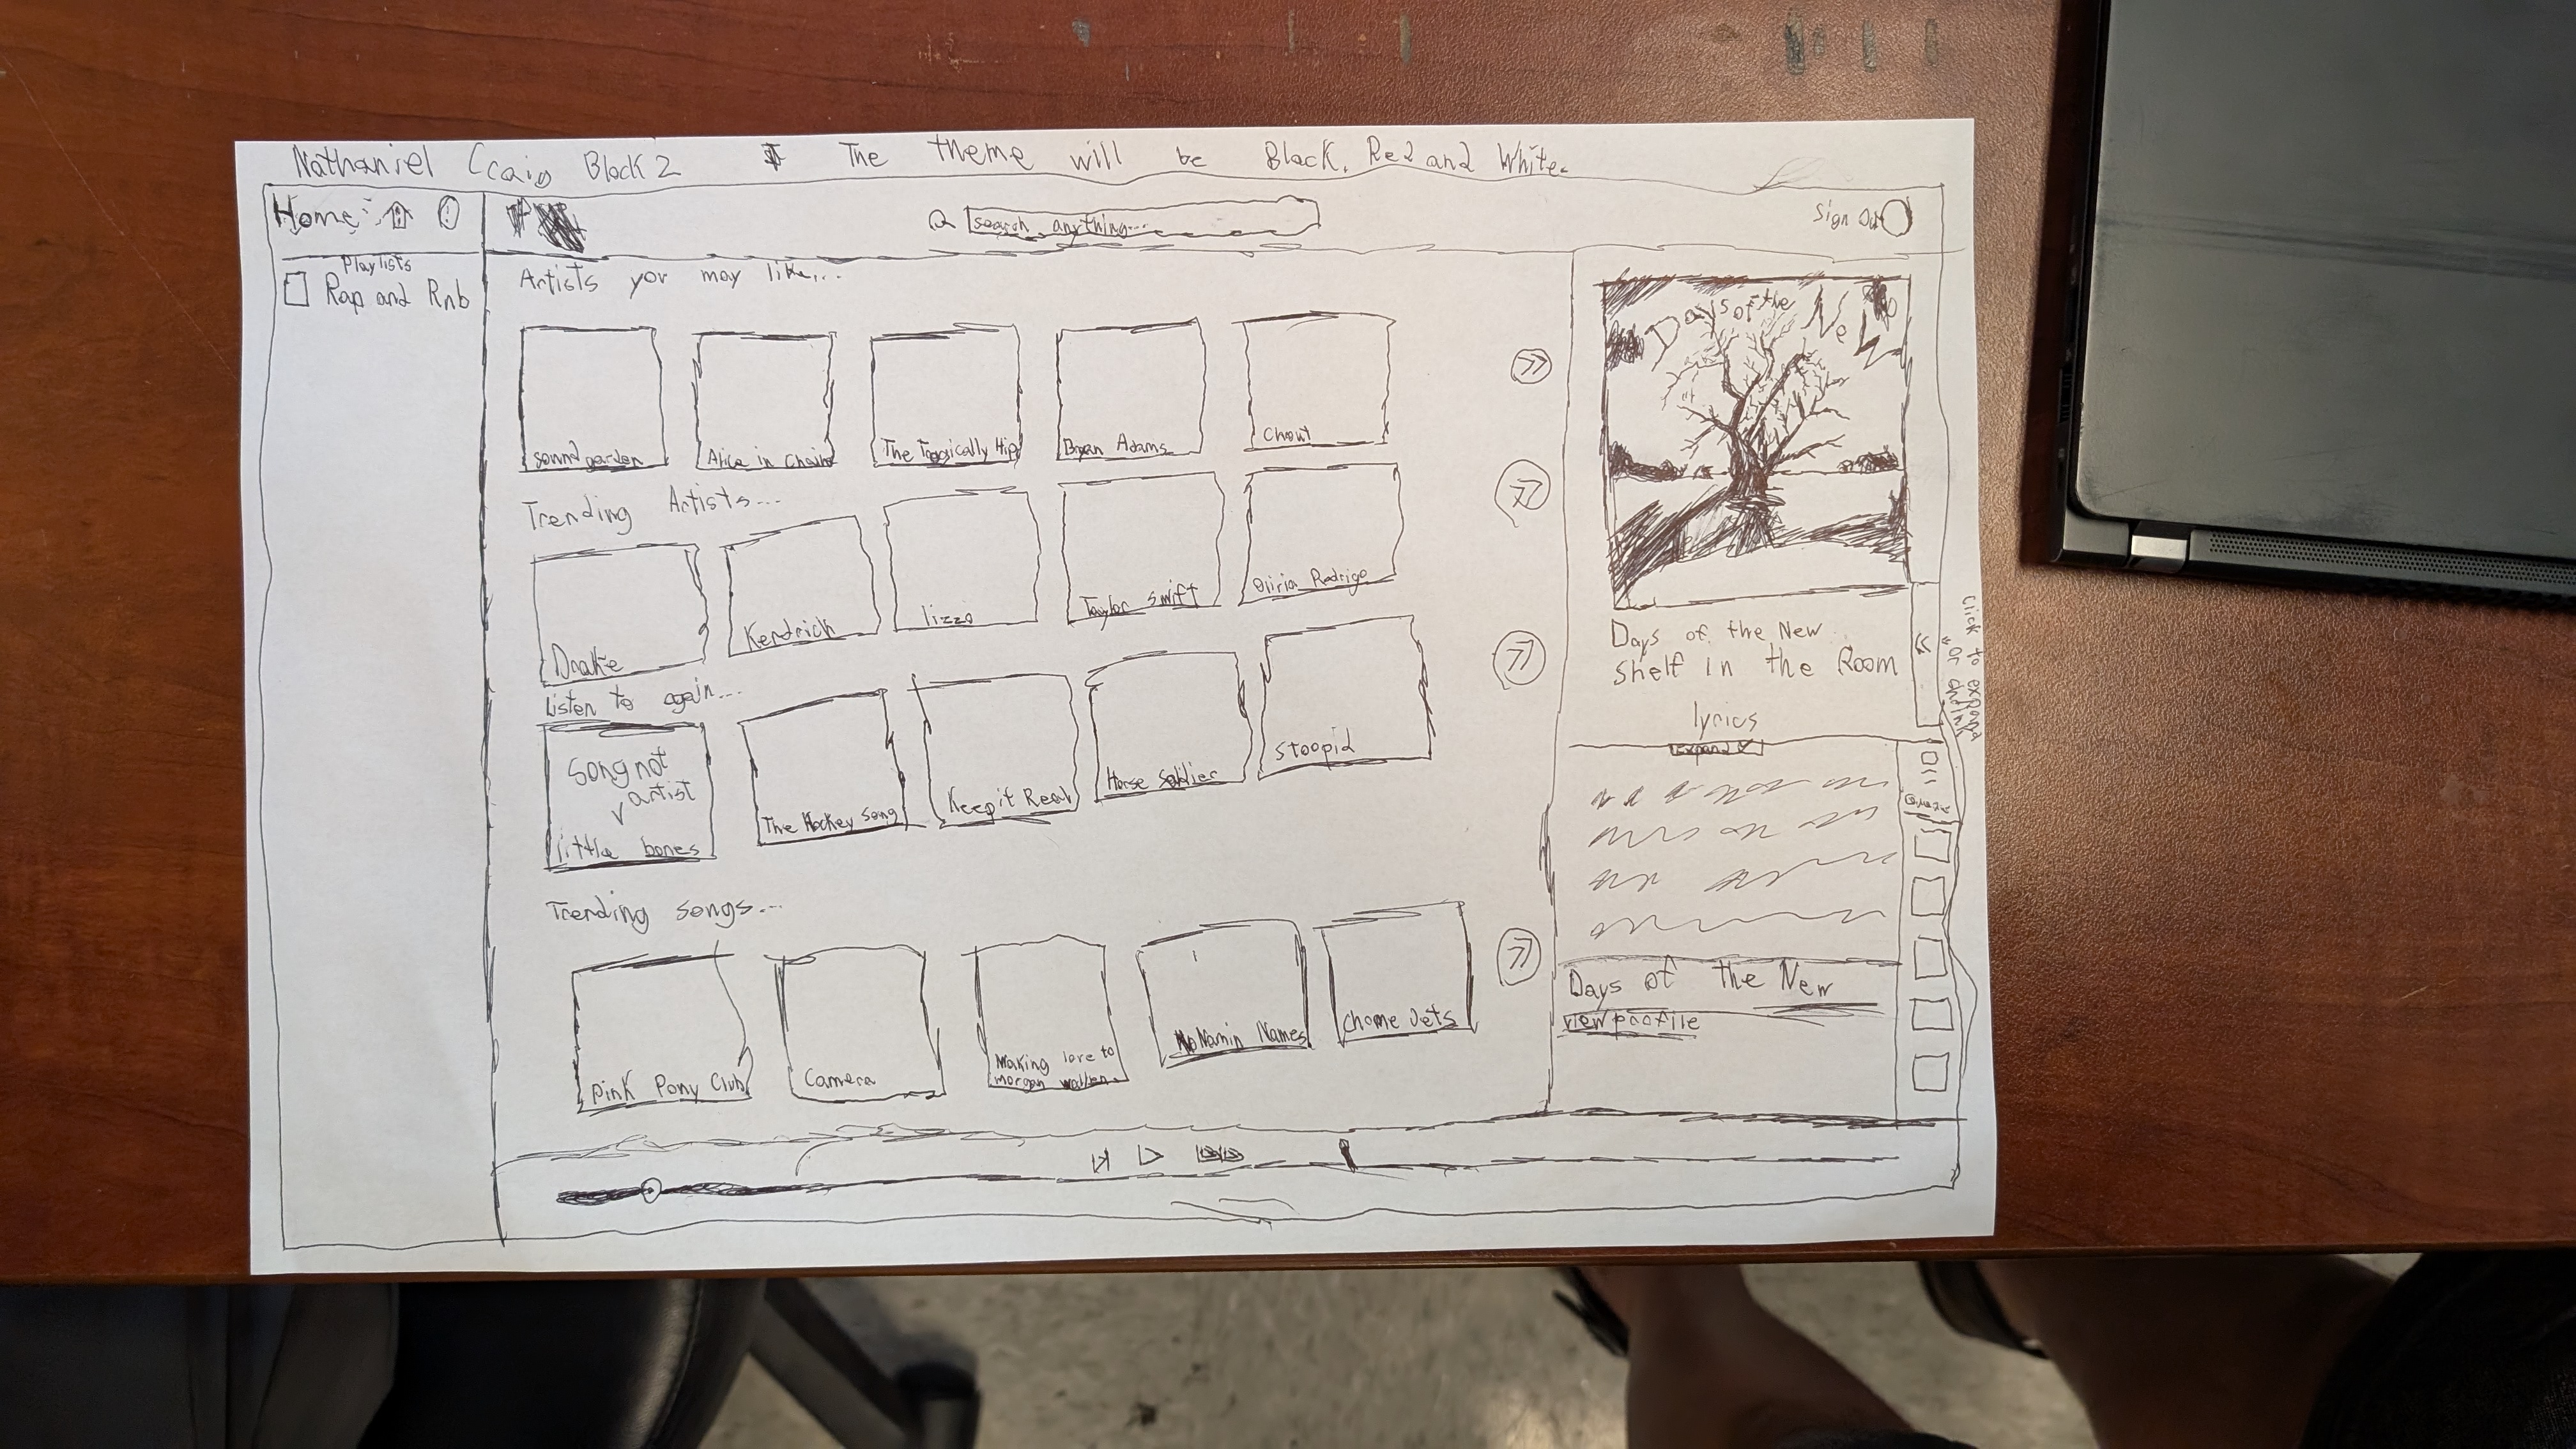 Nathaniel Ccraig Block 2 The theme will be Black, Red and White.
Home:
search anything...
Sign Out
Playlists
Rap and Rnb
Artists you may like...
sound garden
Alice in Chains
The Tragically Hip
Bryan Adams
Trending Artists...
Drake
Kendrick
lizzo
Taylor swift
Oliria Rodrigo
Listen to again...
Song not
artist
little bones
The Hockey song
Keep it Real
Horse Soldier
Stoopid
Trending songs...
Pink Pony Club
Camera
Making love to
morgan wallen
No Namin Names
Chome Jets
Days of the New
Days of the New
Shelf in the Room
lyrics
Expand
Click to expand
or shrink
Queue
Days of the New
view profile